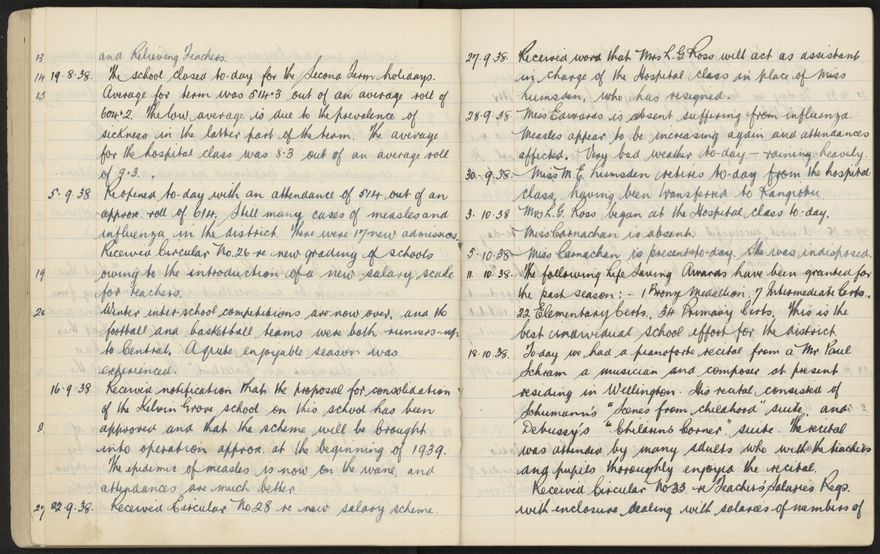 13 and Relieving Teachers.
14 19.8.38. The school closed to-day for the Second Term holidays.
15 Average for term was 514.3 out of an average roll of
604.2. The low average is due to the prevalence of
sickness in the latter part of the term. The average
for the hospital class was 8.3 out of an average roll
of 9.3.
5.9.38 Reopened to-day with an attendance of 514 out of an
approx. roll of 614. Still many cases of measles and
influenza in the district. There were 17 new admissions.
Received Circular No. 26 re new grading of schools
19 owing to the introduction of a new salary scale
for teachers.
20 Winter inter school competitions are now over, and the
football and basketball teams were both runners-up
to Central. A quite enjoyable season was
experienced.
16.9.38 Received notification that the proposal for consolidation
of the Kelvin Grove school on this school has been
approved and that the scheme will be brought
into operation approx. at the beginning of 1939.
The epidemic of measles is now on the wane, and
attendances are much better.
27 22.9.38. Received Circular No 28 re new salary scheme.
27.9.38. Received word that Mrs L. G. Ross will act as assistant
in charge of the Hospital class in place of Miss
Lumsden, who has resigned.
28.9.38. Miss Edwards is absent suffering from influenza.
Measles appear to be increasing again and attendances
affected. Very bad weather to-day — raining heavily.
30.9.38. Miss M. E. Lumsden retires to-day from the hospital
class, having been transferred to Rangotu
3.10.38 Mrs L. G. Ross began at the Hospital class to-day.
Miss Carnachan is absent.
5.10.38 Miss Carnachan is present to-day. She was indisposed.
11.10.38. The following Life Saving Awards have been granted for
the past season:- 1 Bronz Medellion, 7 Intermediate Certs.,
22 Elementary Certs, 34 Primary Certs. This is the
best individual school effort for the district
18.10.38. To-day we had a pianoforte recital from a Mr Paul
Schram a musician and composer at present
residing in Wellington. His recital consisted of
Schumann's "Scenes from Childhood" suite, and
Debussy's "Childrens Corner" suite. The recital
was attended by many adults who with the teachers
and pupils thoroughly enjoyed the recital.
Received Circular No 33 re Teachers' Salaries Regs.
with enclosure dealing with salaries of members of